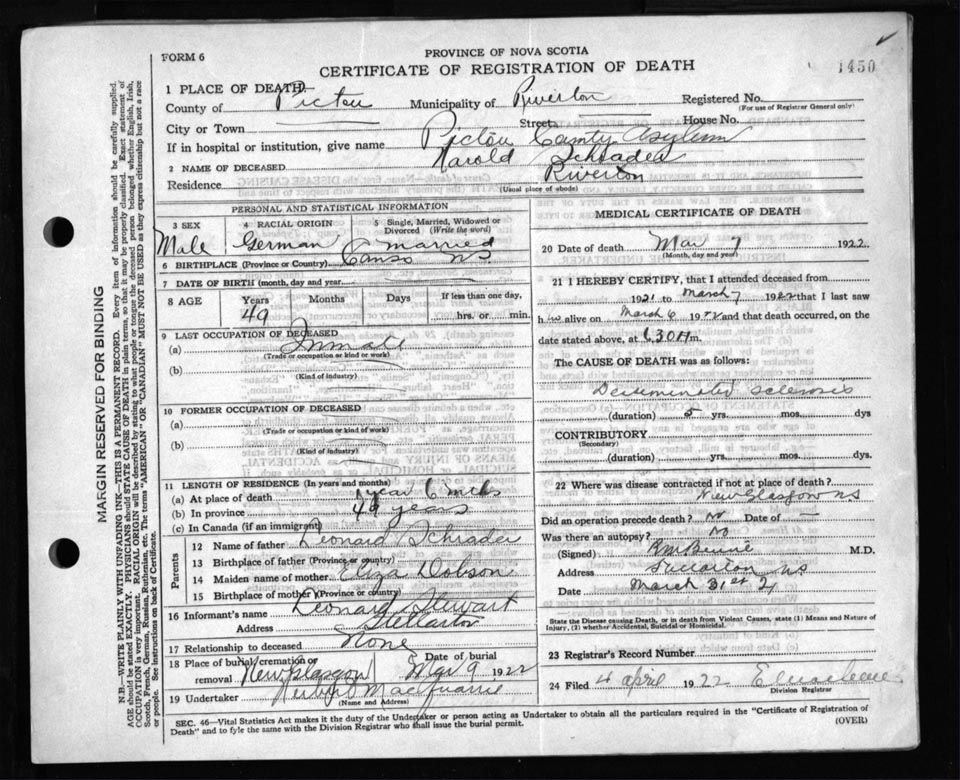 FORM 6
PROVINCE OF NOVA SCOTIA
CERTIFICATE OF REGISTRATION OF DEATH
1450
1 PLACE OF DEATH—
County of Pictou Municipality of Riverton Registered No.
(For use of Registrar General only)
City or Town Street House No.
If in hospital or institution, give name Pictou County Asylum
2 NAME OF DECEASED Harold Schrader
Residence Riverton
(Usual place of abode)
PERSONAL AND STATISTICAL INFORMATION
3 SEX 4 RACIAL ORIGIN 5 Single, Married, Widowed or Divorced (Write the word)
Male German Married
6 BIRTHPLACE (Province or Country) Canso NS
7 DATE OF BIRTH (month, day and year)
8 AGE Years Months Days If less than one day,
49 hrs. or min.
9 LAST OCCUPATION OF DECEASED
(a) Inmate
(Trade or occupation or kind of work)
(b)
(Kind of industry)
10 FORMER OCCUPATION OF DECEASED
(a)
(Trade or occupation or kind of work)
(b)
(Kind of industry)
11 LENGTH OF RESIDENCE (In years and months)
(a) At place of death 1 year 6 mths
(b) In province 49 years
(c) In Canada (if an immigrant)
Parents
12 Name of father Leonard Schrader
13 Birthplace of father (Province or country)
14 Maiden name of mother Eliza Dobson
15 Birthplace of mother (Province or country)
16 Informant's name Leonard Stewart
Address Stellarton
17 Relationship to deceased None
18 Place of burial, cremation or removal New Glasgow Date of burial Mar 9 1922
19 Undertaker
(Name and Address)
MEDICAL CERTIFICATE OF DEATH
20 Date of death Mar 7 1922
(Month, day and year)
21 I HEREBY CERTIFY, that I attended deceased from
1921 to March 7 1922 that I last saw
h alive on March 6 1922 and that death occurred, on
date stated above, at m.
The CAUSE OF DEATH was as follows:
sclerosis
(duration) 5 yrs. mos. dys
CONTRIBUTORY
(Secondary)
(duration) yrs. mos. dys.
22 Where was disease contracted if not at place of death?
New Glasgow NS
Did an operation precede death? No Date of —
Was there an autopsy? No
(Signed) M.D.
Address Stellarton NS
Date March 31st
State the Disease causing Death, or in death from Violent Causes, state (1) Means and Nature of Injury, (2) whether Accidental, Suicidal or Homicidal.
23 Registrar's Record Number
24 Filed 4 April 1922
Division Registrar
SEC. 46—Vital Statistics Act makes it the duty of the Undertaker or person acting as Undertaker to obtain all the particulars required in the "Certificate of Registration of
Death" and to fyle the same with the Division Registrar who shall issue the burial permit.
(OVER)
MARGIN RESERVED FOR BINDING
N.B.—WRITE PLAINLY WITH UNFADING INK—THIS IS A PERMANENT RECORD. Every item of information should be carefully supplied.
AGE should be stated EXACTLY. PHYSICIANS should STATE CAUSE OF DEATH in plain terms, so that it may be properly classified. Exact statement of
OCCUPATION is very important. RACIAL ORIGIN will be described by stating to what people or tongue the deceased person belonged whether English, Irish,
Scotch, French, German, Russian, Ruthenian, etc. The terms "AMERICAN" OR "CANADIAN" MUST NOT BE USED as they express citizenship but not a race
or people. See instructions on back of Certificate.